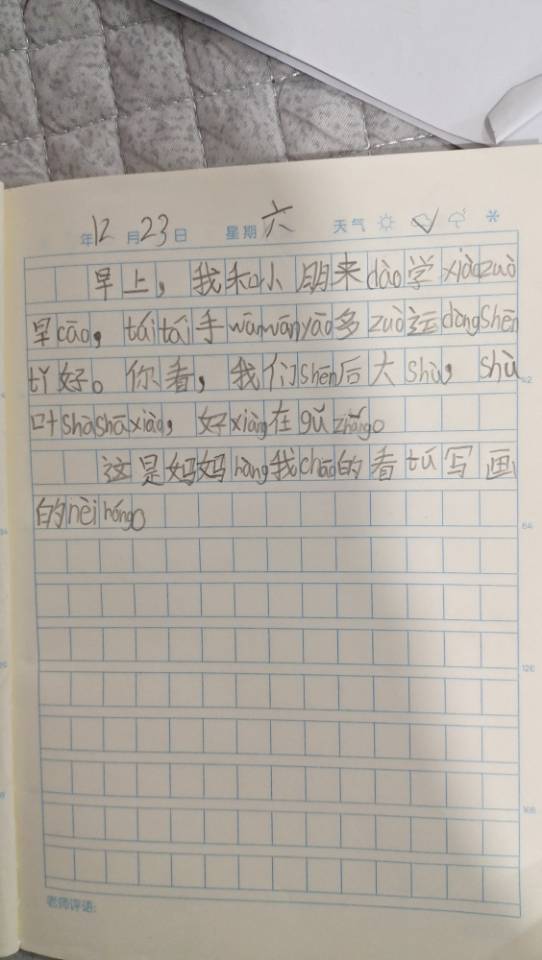 年12月23日 星期六 天气
早上，我和小朋来dào学xiàozuò
早cāo，tái tái手wānwānyāo多zuò运dòngshēn
tǐ好。你看，我们shēn后大shù，shù
叶shāshāxiǎng，好xiàng在gǔ zhǎng。
这是妈妈ràng我chāo的看tú写画
的nèi róng。
老师评语: